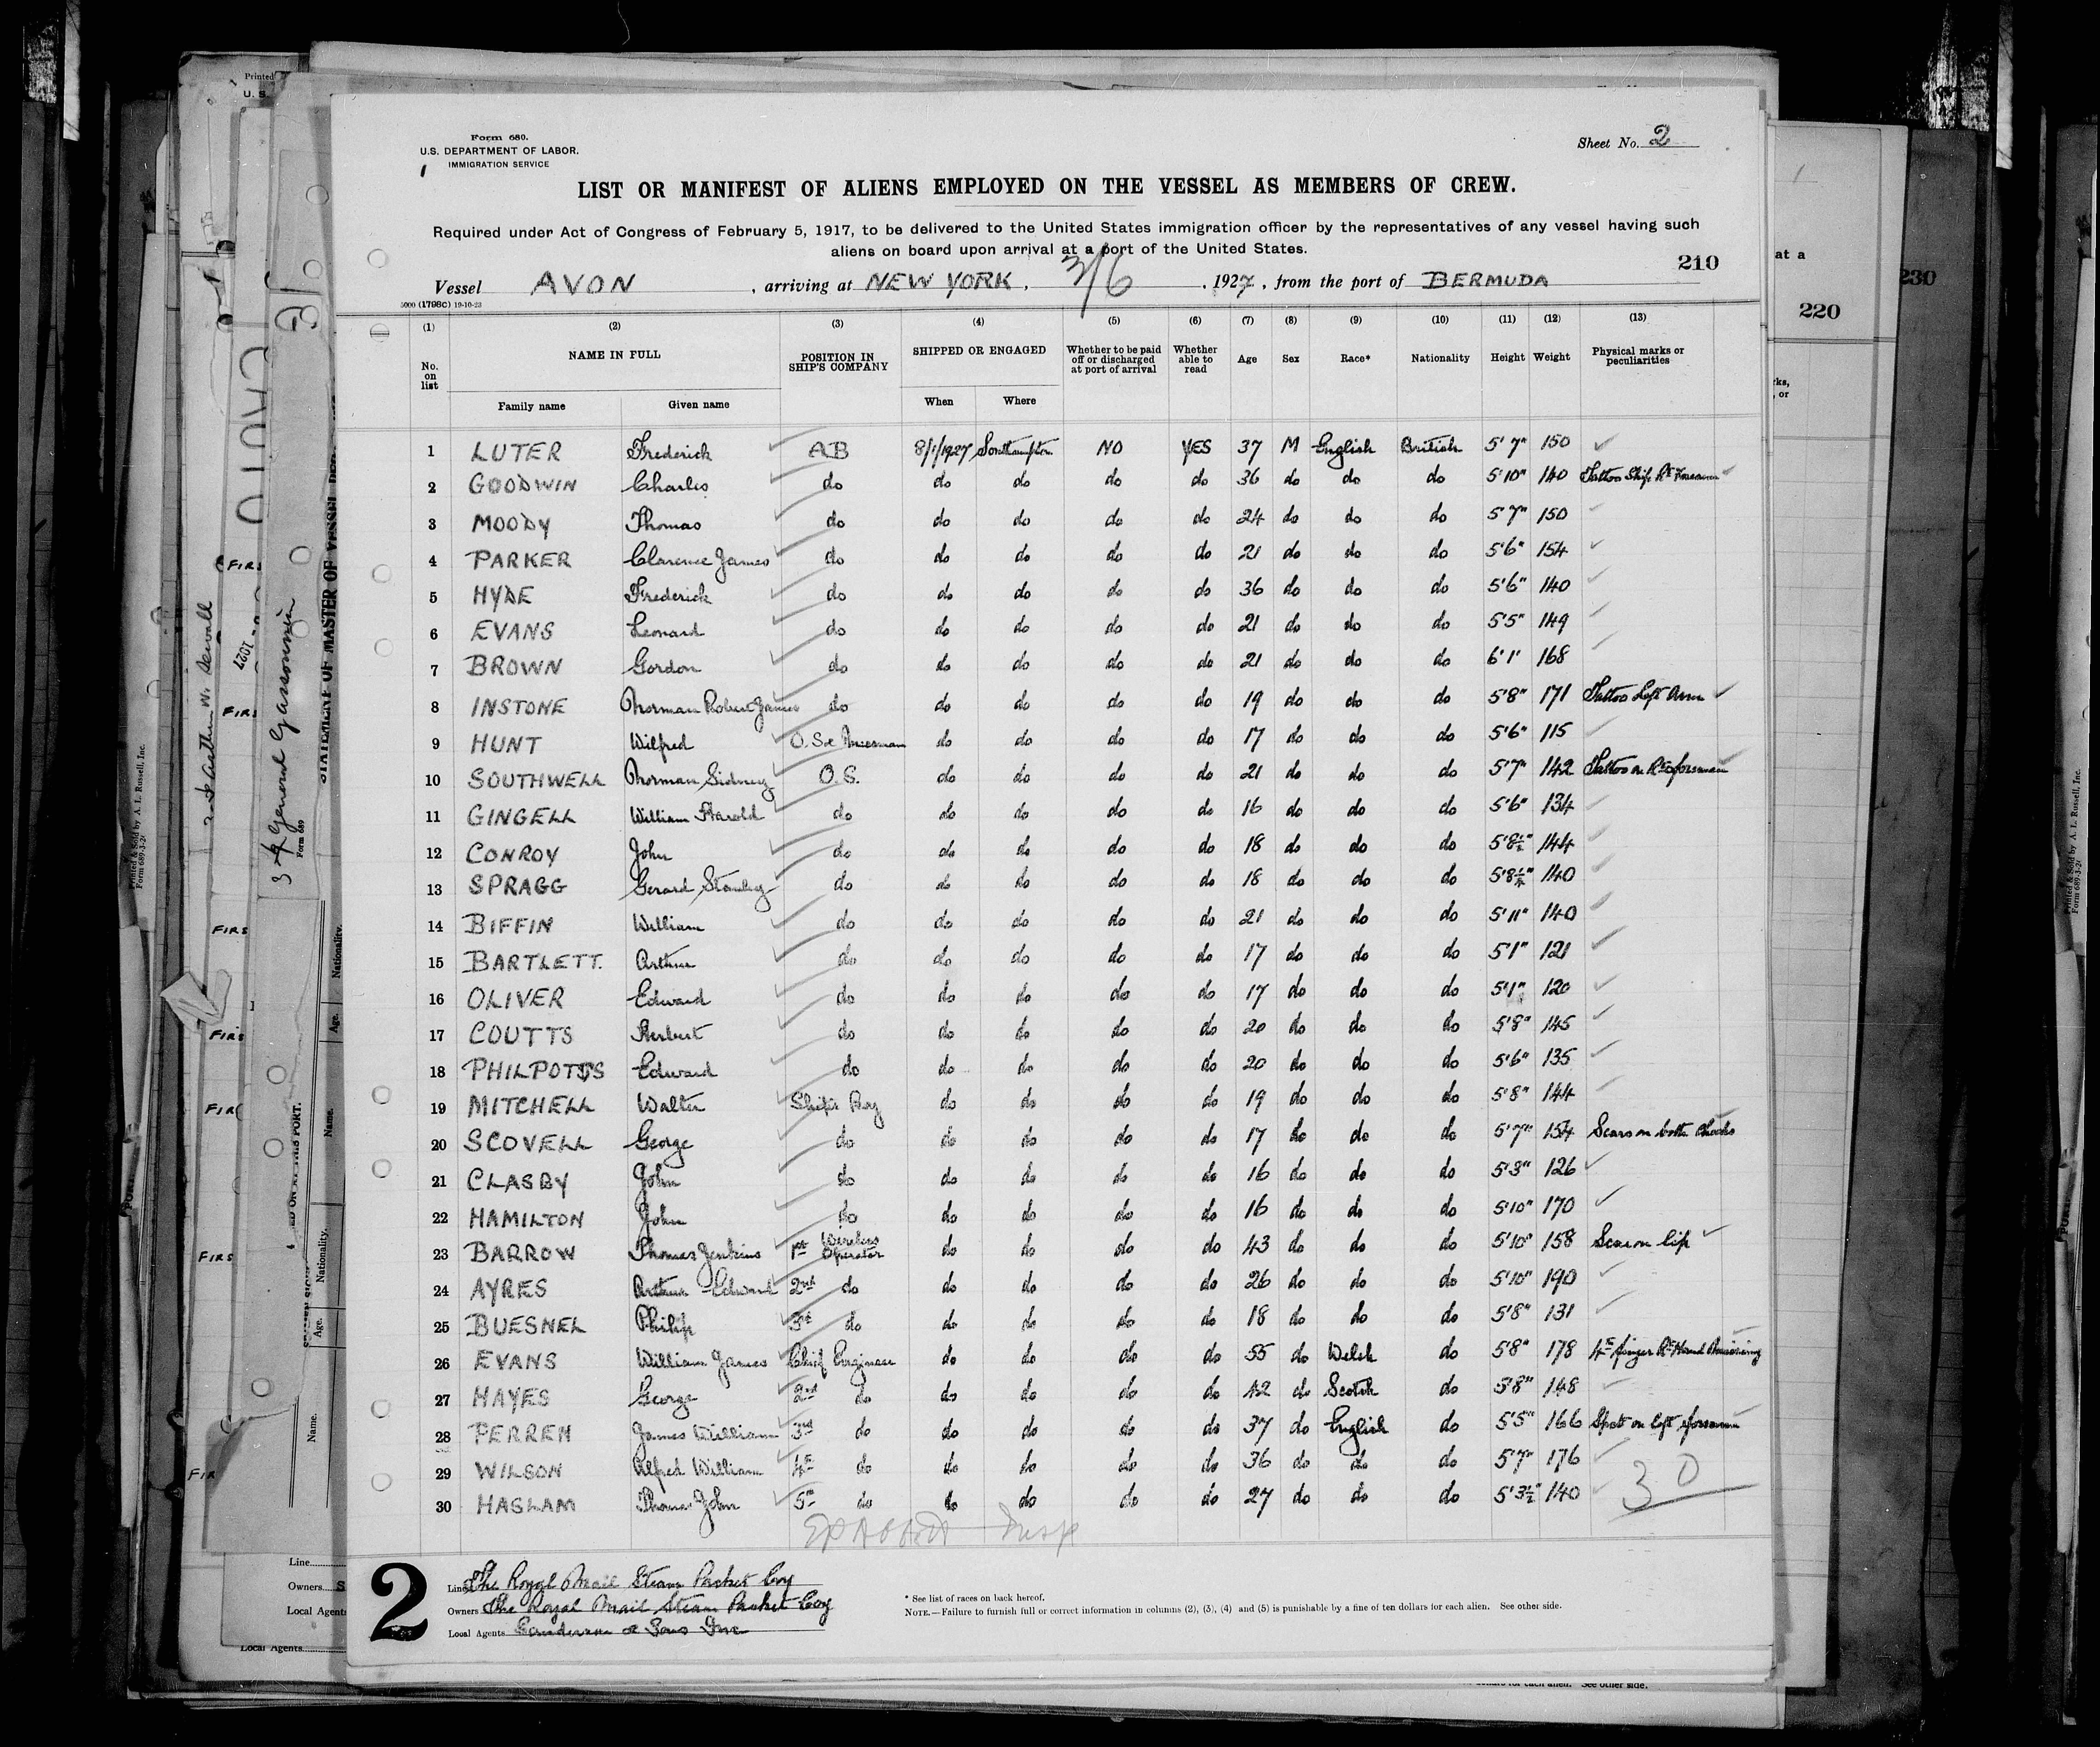 Form 680.
U.S. DEPARTMENT OF LABOR.
IMMIGRATION SERVICE
Sheet No. 2
LIST OR MANIFEST OF ALIENS EMPLOYED ON THE VESSEL AS MEMBERS OF CREW.
Required under Act of Congress of February 5, 1917, to be delivered to the United States immigration officer by the representatives of any vessel having such
aliens on board upon arrival at a port of the United States.
210
Vessel AVON, arriving at NEW YORK, 3/6, 1927, from the port of BERMUDA
5000 (1798C) 19-10-23
(1) (2) (3) (4) (5) (6) (7) (8) (9) (10) (11) (12) (13)
No. on list NAME IN FULL Family name Given name POSITION IN SHIP'S COMPANY SHIPPED OR ENGAGED When Where Whether to be paid off or discharged at port of arrival Whether able to read Age Sex Race* Nationality Height Weight Physical marks or peculiarities
1 LUTER Frederick AB 8/1/1927 Southampton NO YES 37 M English British 5'7" 150
2 GOODWIN Charles do do do do do 36 do do do 5'10" 140 Tattoo Ship Rt Forearm
3 MOODY Thomas do do do do do 24 do do do 5'7" 150
4 PARKER Clarence James do do do do do 21 do do do 5'6" 154
5 HYDE Frederick do do do do do 36 do do do 5'6" 140
6 EVANS Leonard do do do do do 21 do do do 5'5" 149
7 BROWN Gordon do do do do do 21 do do do 6'1" 168
8 INSTONE Norman Robert James do do do do do 19 do do do 5'8" 171 Tattoo Left Arm
9 HUNT Wilfred O.S. do do do do 17 do do do 5'6" 115
10 SOUTHWELL Norman Sidney O.S. do do do do 21 do do do 5'7" 142 Tattoo on Rt forearm
11 GINGELL William Harold do do do do do 16 do do do 5'6" 134
12 CONROY John do do do do do 18 do do do 5'8½" 144
13 SPRAGG Gerard Stanley do do do do do 18 do do do 5'8½" 140
14 BIFFIN William do do do do do 21 do do do 5'11" 140
15 BARTLETT. Arthur do do do do do 17 do do do 5'1" 121
16 OLIVER Edward do do do do do 17 do do do 5'1" 120
17 COUTTS Herbert do do do do do 20 do do do 5'8" 145
18 PHILPOTTS Edward do do do do do 20 do do do 5'6" 135
19 MITCHELL Walter Ship's Boy do do do do 19 do do do 5'8" 144
20 SCOVELL George do do do do do 17 do do do 5'7" 154 Scars on both cheeks
21 CLASBY John do do do do do 16 do do do 5'3" 126
22 HAMILTON John do do do do do 16 do do do 5'10" 170
23 BARROW Thomas Jenkins 1st Wireless Operator do do do do 43 do do do 5'10" 158 Scar on lip
24 AYRES Arthur Edward 2nd do do do do do 26 do do do 5'10" 190
25 BUESNEL Philip 3rd do do do do do 18 do do do 5'8" 131
26 EVANS William James Chief Engineer do do do do 55 do Welsh do 5'8" 178 4th finger Rt Hand Missing
27 HAYES George 2nd do do do do do 42 do Scotch do 5'8" 148
28 PERREN James William 3rd do do do do do 37 do English do 5'5" 166 Spot on left forearm
29 WILSON Alfred William 4th do do do do do 36 do do do 5'7" 176
30 HASLAM Thomas John 5th do do do do do 27 do do do 5'3½" 140
30
2
Line The Royal Mail Steam Packet Coy
Owners The Royal Mail Steam Packet Coy
Local Agents Sanderson & Sons Inc
* See list of races on back hereof.
NOTE.—Failure to furnish full or correct information in columns (2), (3), (4) and (5) is punishable by a fine of ten dollars for each alien. See other side.
at a
220
230
Printed
U. S.
STATEMENT OF MASTER OF VESSEL
Form 689
Printed & Sold by A. L. Russell, Inc.
Nationality.
Age.
Name.
Nationality.
Age.
Name.
Line
Owners
Local Agents
Local Agents
See other side.